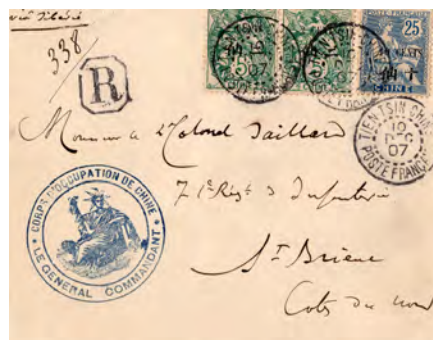 Voie Sibérie
338
R
25
CHINE
TIENTSIN-CHINE
10
DEC
07
POSTE FRANÇAISE
Monsieur le Lt Colonel Taillard
71e Régt d'Infanterie
St Brieuc
Cotes du nord
CORPS D'OCCUPATION DE CHINE
LE GENERAL COMMANDANT